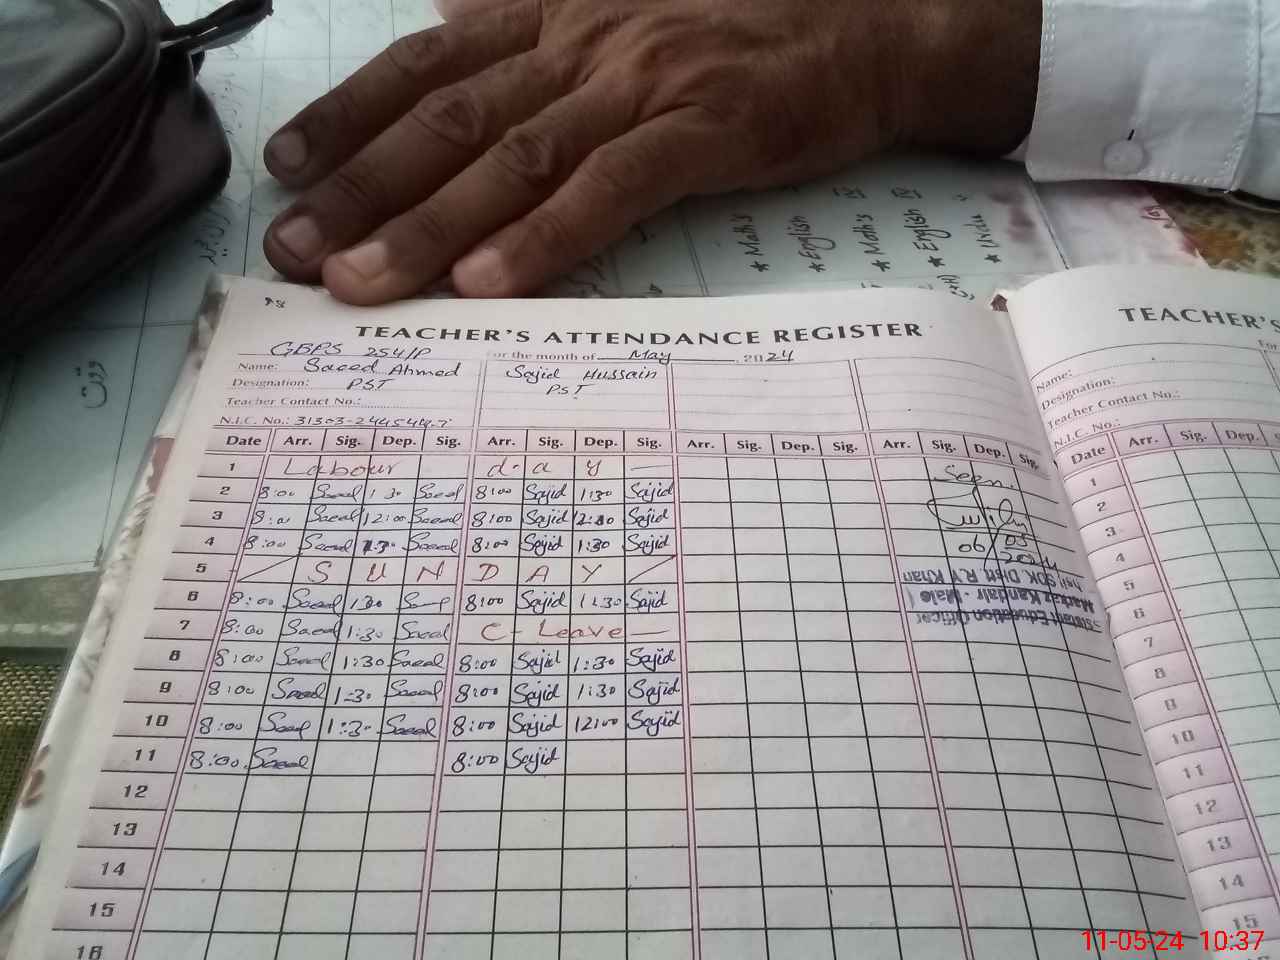 ★ Math's
★ English
★ Math's
★ English
★ Urdu
TEACHER'S ATTENDANCE REGISTER
GBPS 254/P For the month of May, 2024
Name: Saeed Ahmed Sajid Hussain
Designation: PST PST
Teacher Contact No.:
N.I.C. No.:
Date Arr. Sig. Dep. Sig. Arr. Sig. Dep. Sig. Arr. Sig. Dep. Sig. Arr. Sig. Dep. Sig.
1 Labour d a y Seen
2 8:00 Saeed 1:30 Saeed 8:00 Sajid 1:30 Sajid
3 8:00 Saeed 12:00 Saeed 8:00 Sajid 12:00 Sajid
4 8:00 Saeed 1:30 Saeed 8:00 Sajid 1:30 Sajid 06/05
5 S U N D A Y 2024
6 8:00 Saeed 1:30 Saeed 8:00 Sajid 1:30 Sajid
7 8:00 Saeed 1:30 Saeed C-Leave
8 8:00 Saeed 1:30 Saeed 8:00 Sajid 1:30 Sajid
9 8:00 Saeed 1:30 Saeed 8:00 Sajid 1:30 Sajid
10 8:00 Saeed 1:30 Saeed 8:00 Sajid 12:00 Sajid
11 8:00 Saeed 8:00 Sajid
12
13
14
15
16
Education Officer
Markaz Male
SDK Distt R.Y Khan
TEACHER'S
For
Name:
Designation:
Teacher Contact No.:
N.I.C. No.:
Date Arr. Sig. Dep.
1
2
3
4
5
6
7
8
9
10
11
12
13
14
15
11-05-24 10:37